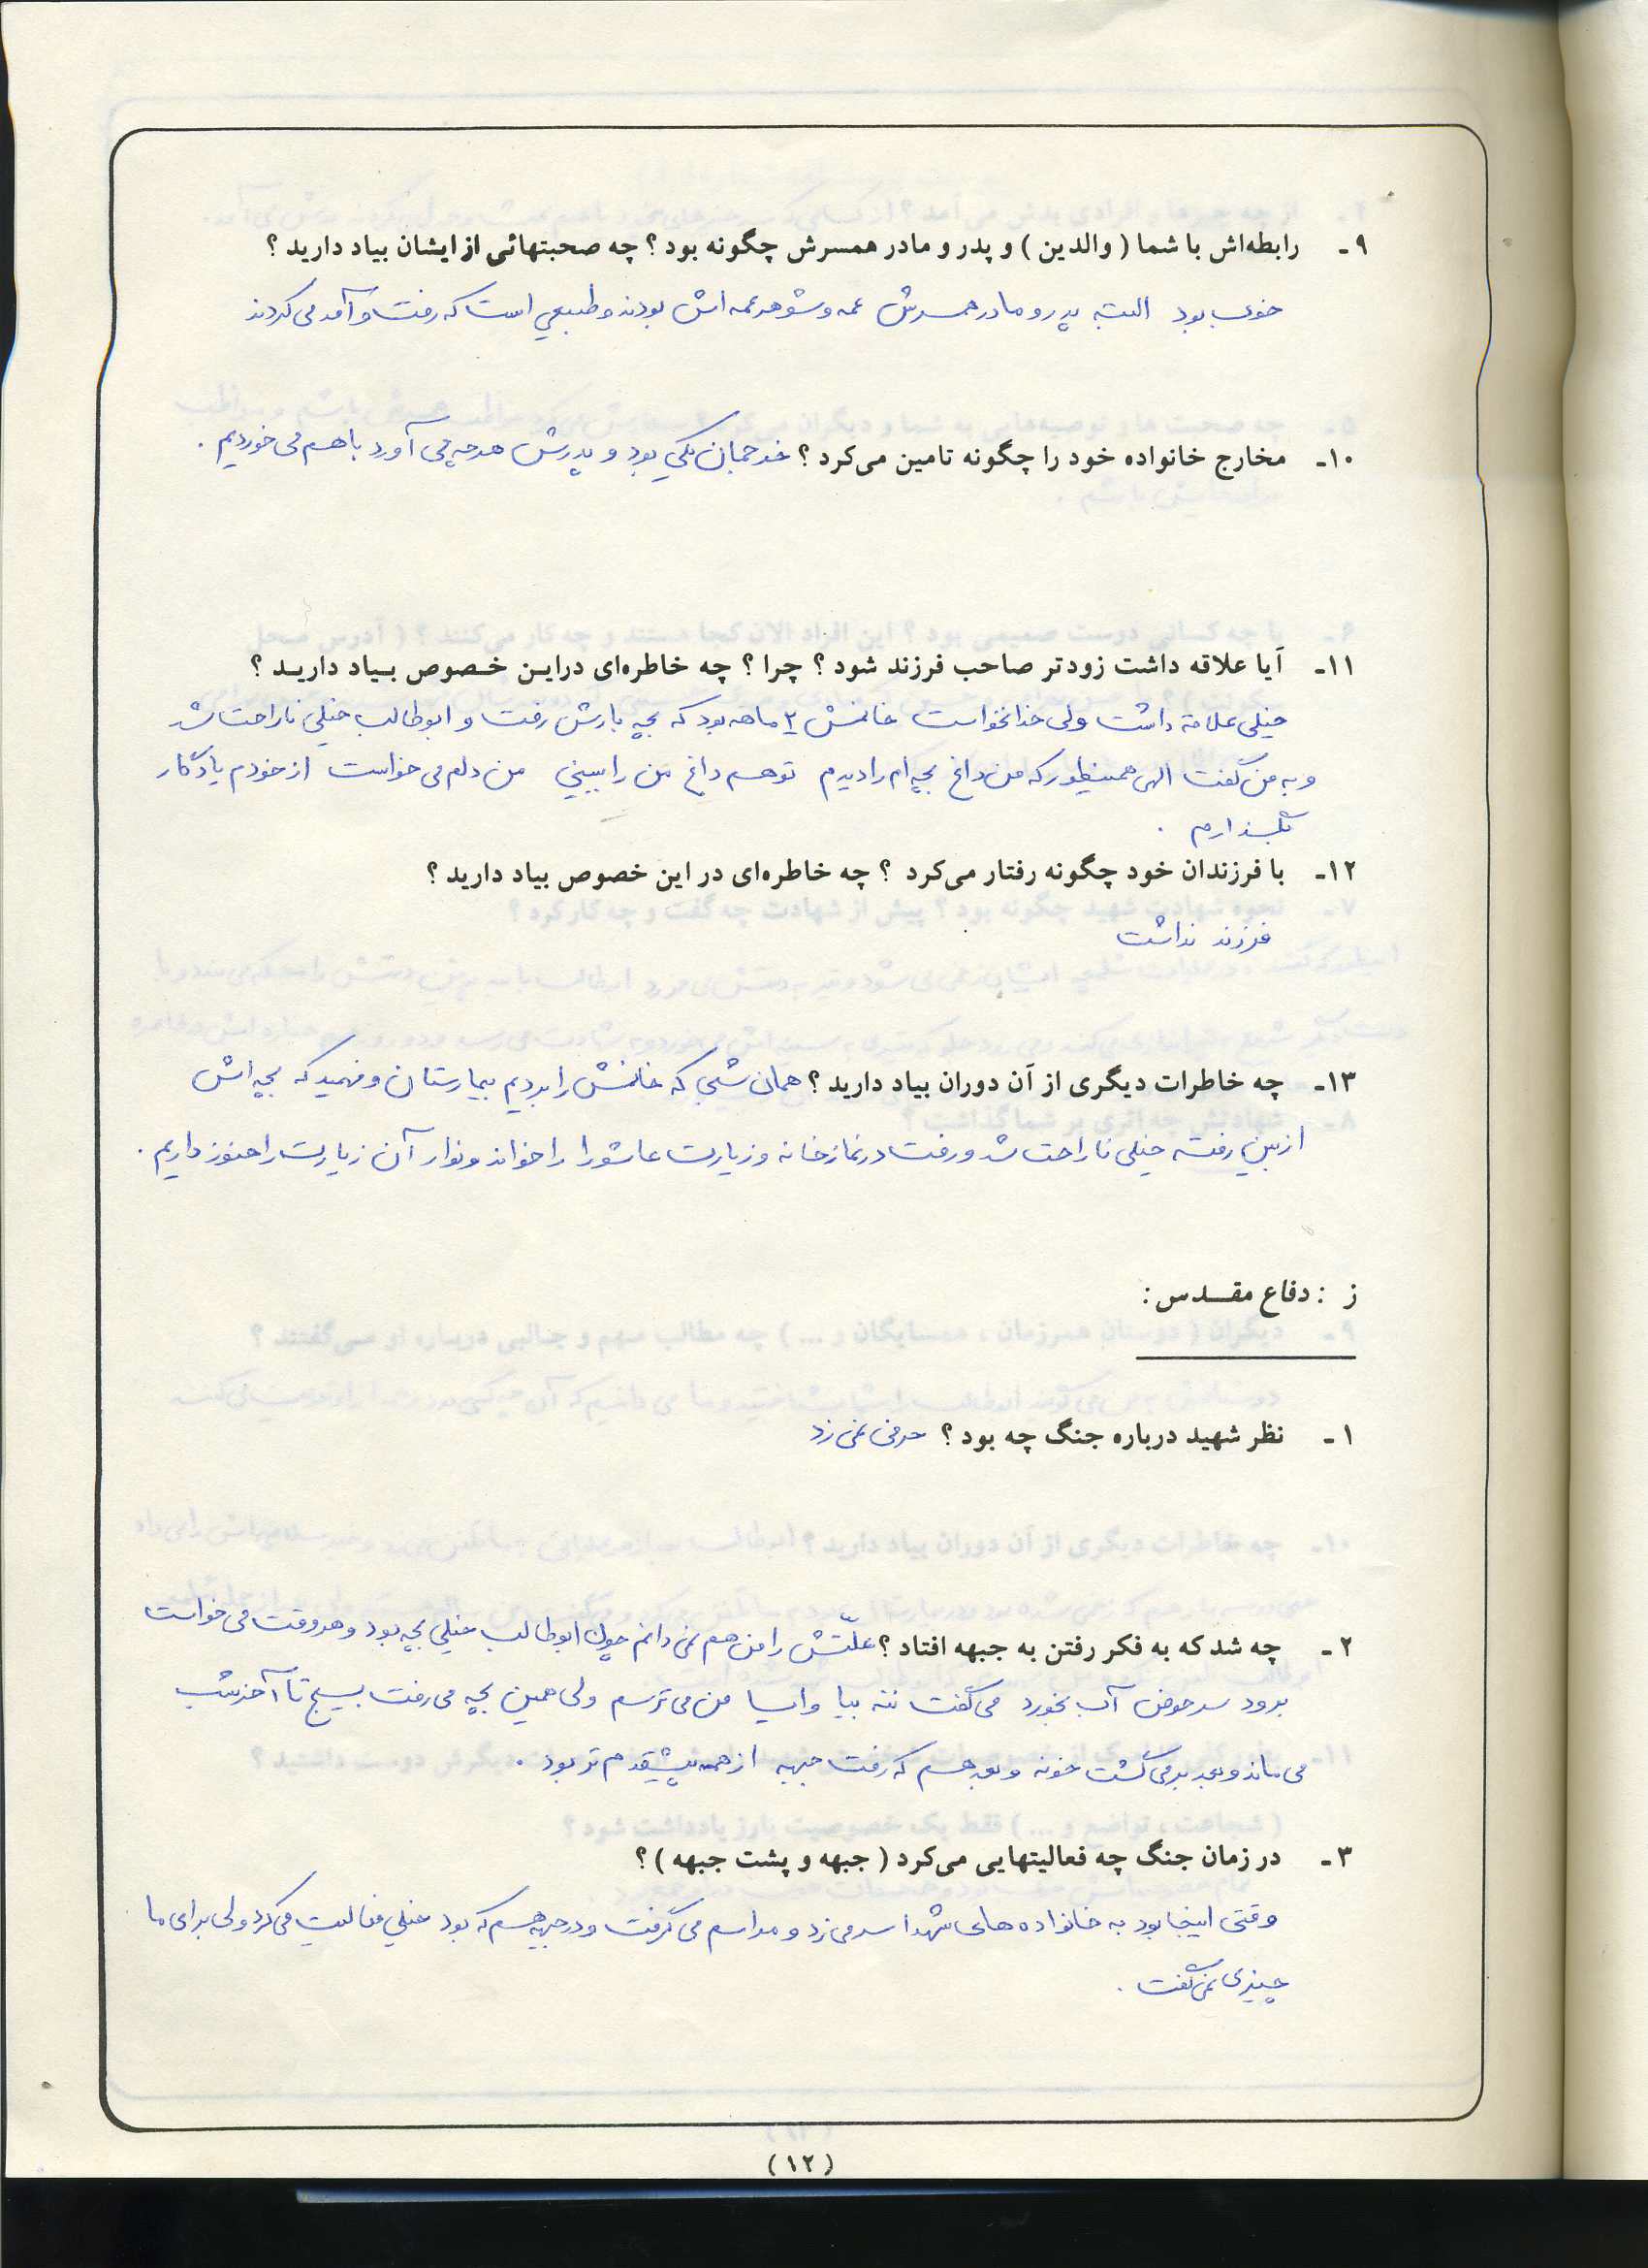 ۹ـ رابطه‌اش با شما ( والدین ) و پدر و مادر همسرش چگونه بود ؟ چه صحبتهائی از ایشان بیاد دارید ؟
خوب بود البته پدر و مادر همسرش عمه و شوهر عمه اش بودند و طبیعی است که رفت و آمد می کردند
۱۰ـ مخارج خانواده خود را چگونه تامین می‌کرد ؟ خرجمان یکی بود و پدرش هرچه می آورد با هم می خوردیم .
۱۱ـ آیا علاقه داشت زودتر صاحب فرزند شود ؟ چرا ؟ چه خاطره‌ای دراین خصوص بیاد دارید ؟
خیلی علاقه داشت ولی خدا نخواست خانمش ۲ ماهه بود که بچه بارش رفت و ابوطالب خیلی ناراحت شد
و به من گفت الهی همینطور که من داغ بچه ام را دیدم تو هم داغ من را ببینی من دلم می خواست از خودم یادگار
بگذارم .
۱۲ـ با فرزندان خود چگونه رفتار می‌کرد ؟ چه خاطره‌ای در این خصوص بیاد دارید ؟
فرزند نداشت
۱۳ـ چه خاطرات دیگری از آن دوران بیاد دارید ؟ همان شبی که خانمش را بردیم بیمارستان و فهمید که بچه اش
از بین رفته خیلی ناراحت شد و رفت در نمازخانه و زیارت عاشورا را خواند و نوار آن زیارت را هنوز داریم .
ز : دفاع مقدس :
۱ـ نظر شهید درباره جنگ چه بود ؟ حرفی نمی زد
۲ـ چه شد که به فکر رفتن به جبهه افتاد ؟ علّتش را من هم نمی دانم چون ابوطالب خیلی بچه بود و هر وقت می خواست
برود سر حوض آب بخورد می گفت ننه بیا وایسا من می ترسم ولی همین بچه می رفت بسیج تا آخر شب
می ماند و بعد برمی گشت خونه و بعد هم که رفت جبهه از همه پیشقدم تر بود .
۳ـ در زمان جنگ چه فعالیتهایی می‌کرد ( جبهه و پشت جبهه ) ؟
وقتی اینجا بود به خانواده های شهدا سر می زد و مراسم می گرفت و در جبهه هم که بود خیلی فعالیت می کرد ولی برای ما
چیزی نمی گفت .
( ۱۲ )